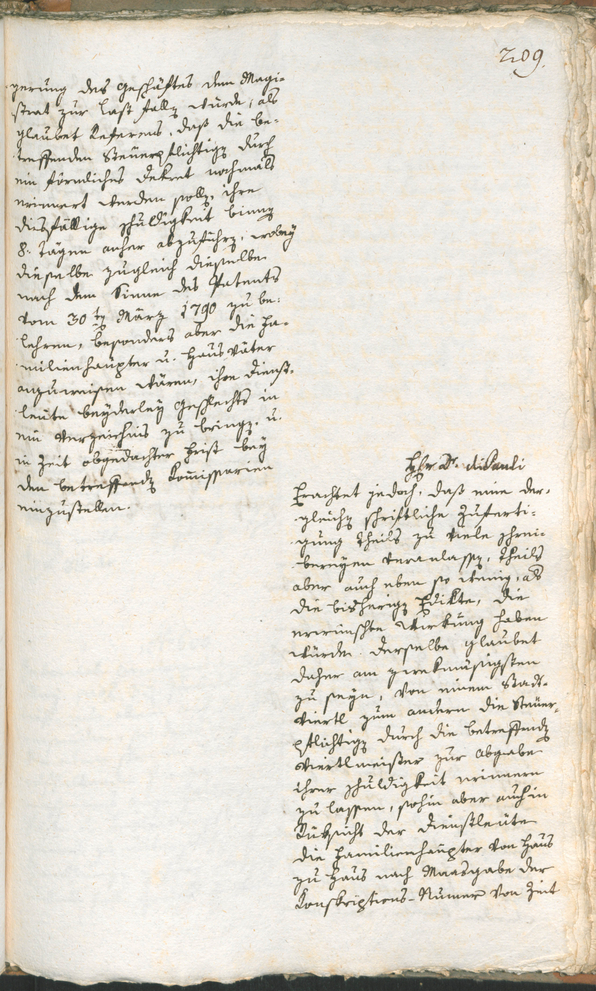 209.
gerung des Geschäftes dem Magi-
strat zur Last fallen würde, als
glaubet Referens, daß die be-
treffenden Steuerpflichtigen durch
ein förmliches Dekret nochmals
erinnert werden sollen, ihre
dießfällige Schuldigkeit binnen
8. Tägen anher abzuführen, wobey
dieselbe zugleich dieselbe
nach dem Sinne des Patents
vom 30ten März 1790 zu be-
lehren, besonders aber die Fa-
milienhäupter u. Haus Väter
anzuweisen wären, ihre Dienst-
leute beyderley Geschlechts in
ein Verzeichnis zu bringen, u.
in Zeit obgedachter Frist bey
den betreffenden Kommissarien
einzustellen.
Hr. D. di Pauli
Erachtet jedoch, daß eine der-
gleichen schriftliche Zuferti-
gung theils zu viele Schrei-
bereyen veranlassen, theils
aber auch eben so wenig, als
die bisherigen Edikte, die
erwünschte Wirkung haben
würde. derselbe glaubet
daher am zwekmäsigsten
zu seyn, von einem Stadt-
viertl zum andern die Steuer-
pflichtigen durch die betreffenden
Viertlmeister zur Abgabe
ihrer Schuldigkeit erinnern
zu lassen, sohin aber auch in
Rüksicht der Dienstleute
die Familienhäupter von Haus
zu Haus nach Maasgabe der
Konskriptions-Numern von Zeit